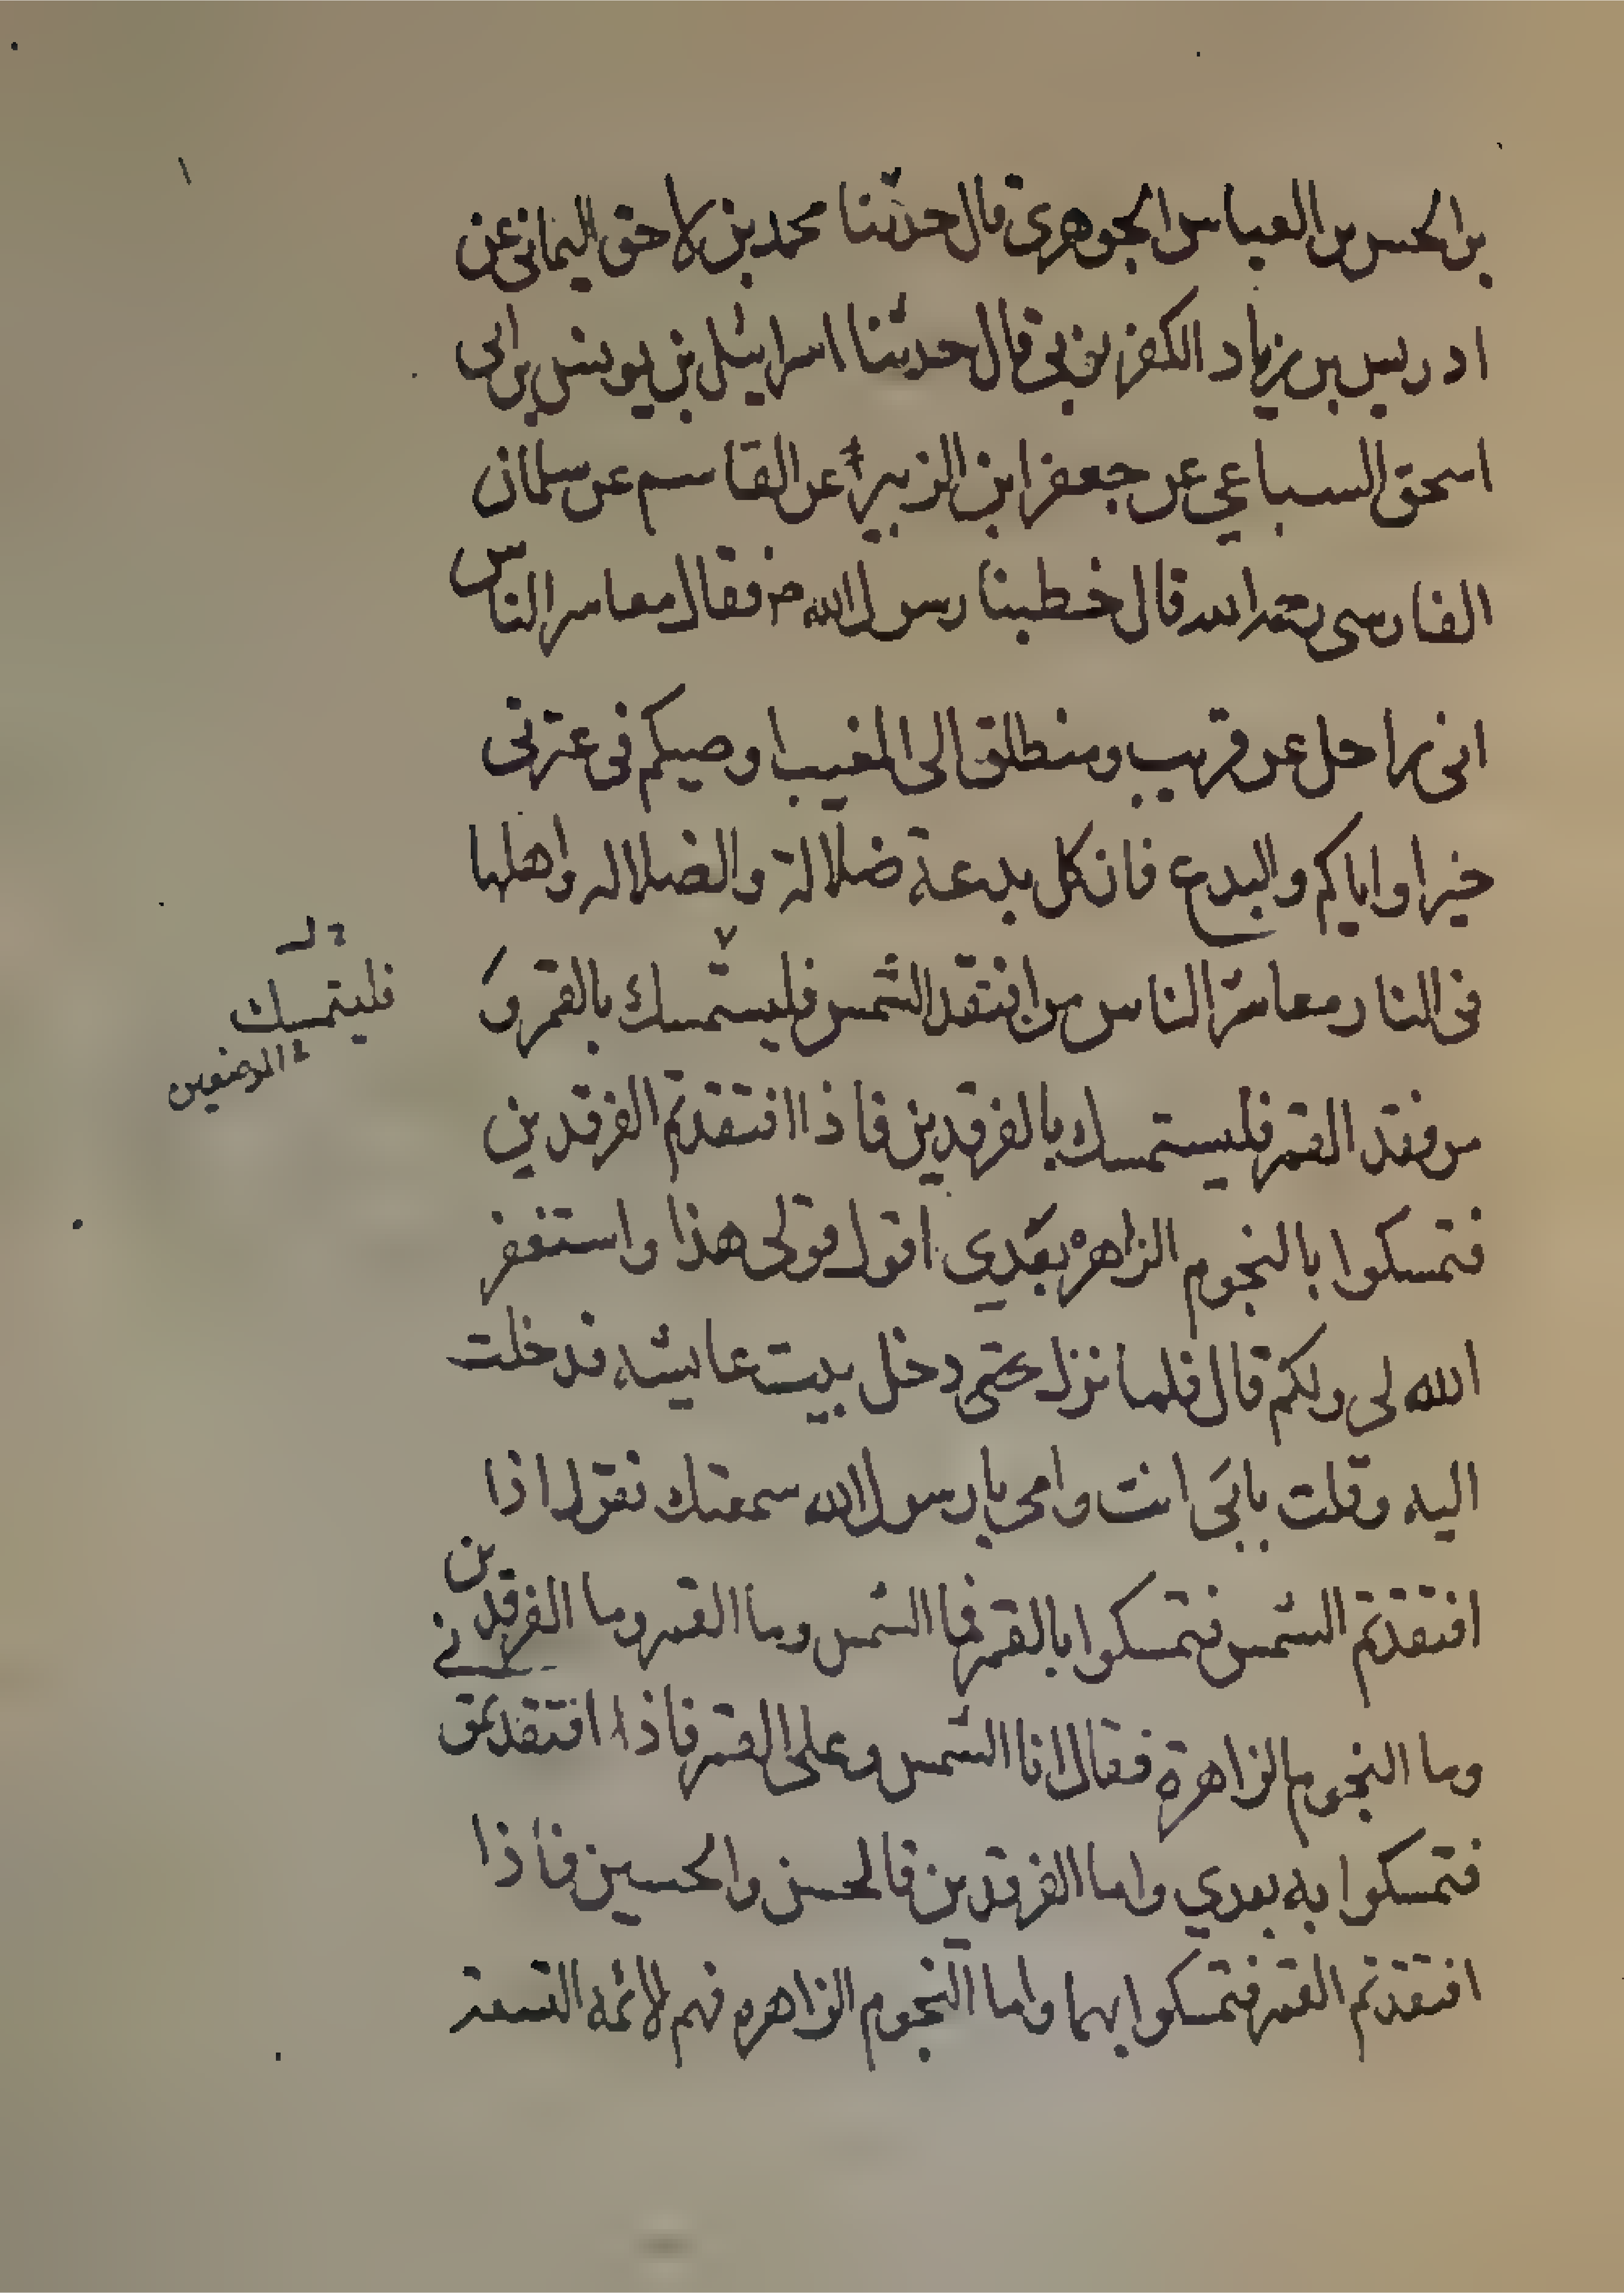 بن الحسن بن العباس الجوهرى قال حدثنا محمد بن لاحق اليمانى عن
ادريس بن زياد الكفرتوثى قال حدثنا اسرائيل بن يونس بن ابى
اسحق السباعي عن جعفر ابن الزبير عن القاسم عن سلمان
الفارسى قال خطبنا رسول الله ص فقال معاسر الناس
انى راحل عن قريب ومنطلق الى المغيب اوصيكم فى عترتى
خيرا واياكم والبدع فان كل بدعة ضلالة والضلاله واهلها
فى النار معاشر الناس من افتقد الشمس فليستمسك بالقمر و
من فقد القمر فليستمسك بالفرقدين فاذا افتقدتم الفرقدين
فتمسكوا بالنجوم الزاهره بعدي اقول قولى هذا واستغفر
الله لى ولكم قال فلما نزل حتى دخل بيت عايشه فدخلت
اليه وقلت بابى انت وامى يا رسول الله سمعتك تقول اذا
افتقدتم الشمس فتمسكوا بالقمر فما الشمس وما القمر وما الفرقدين
وما النجوم الزاهرة فقال انا الشمس وعلى القمر فاذا افتقدتمو
فتمسكوا به بعدي واما الفرقدين فالحسن والحسين فاذا
افتقدتم القمر فتمسكوا بهما واما النجوم الزاهره فهم لائمه التسعة
فليتمسك
الموضعين